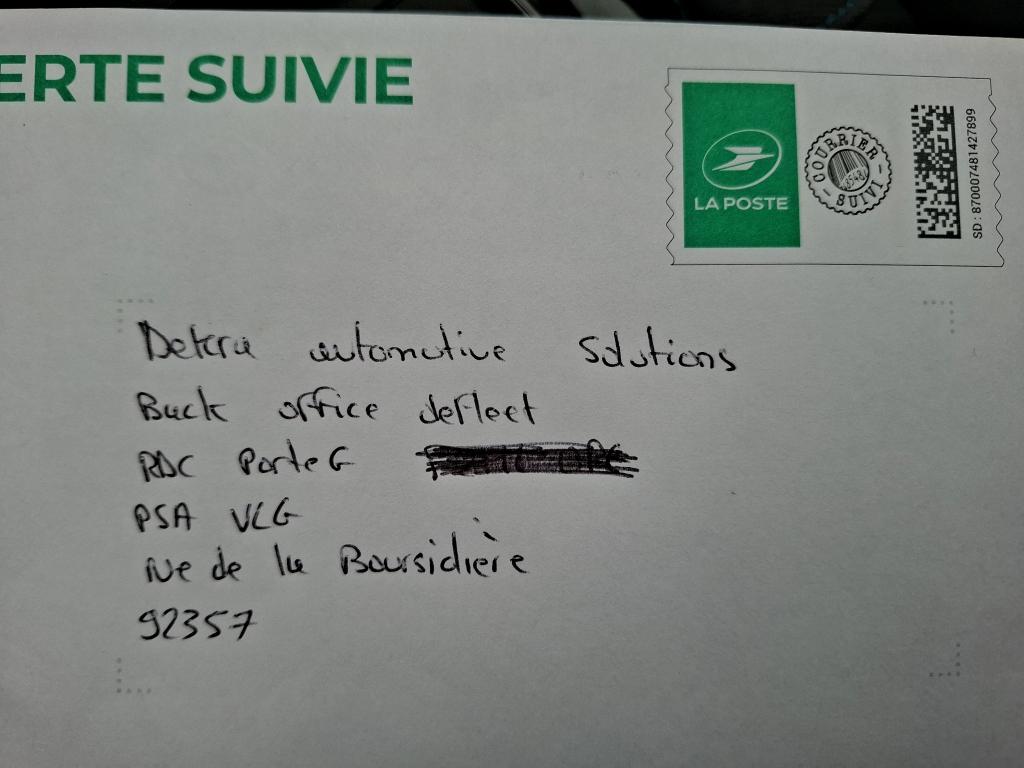 ERTE SUIVIE
LA POSTE
COURRIER
SUIVI
SD : 870007481427899
Dekra automotive Solutions
Back office defleet
RDC Porte G
PSA VLG
rue de la Boursidière
92357